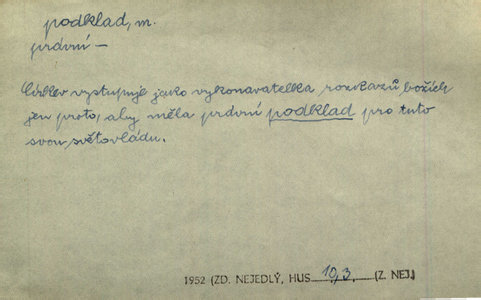 podklad, m.
právní —
Církev vystupuje jako vykonavatelka rozkazů božích
jen proto, aby měla právní podklad pro tuto
svou světovládu.
1952 (ZD. NEJEDLÝ, HUS 10,3. (Z. NEJ.)